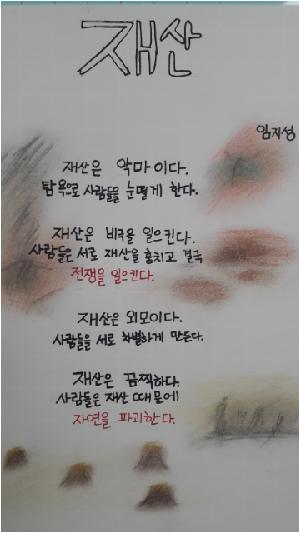 재산
임지성
재산은 악마이다.
탐욕으로 사람들을 눈멀게 한다.
재산은 비극을 일으킨다.
사람들은 서로 재산을 훔치고 결국
전쟁을 일으킨다.
재산은 외모이다.
사람들을 서로 차별하게 만든다.
재산은 끔찍하다.
사람들은 재산 때문에
자연을 파괴한다.